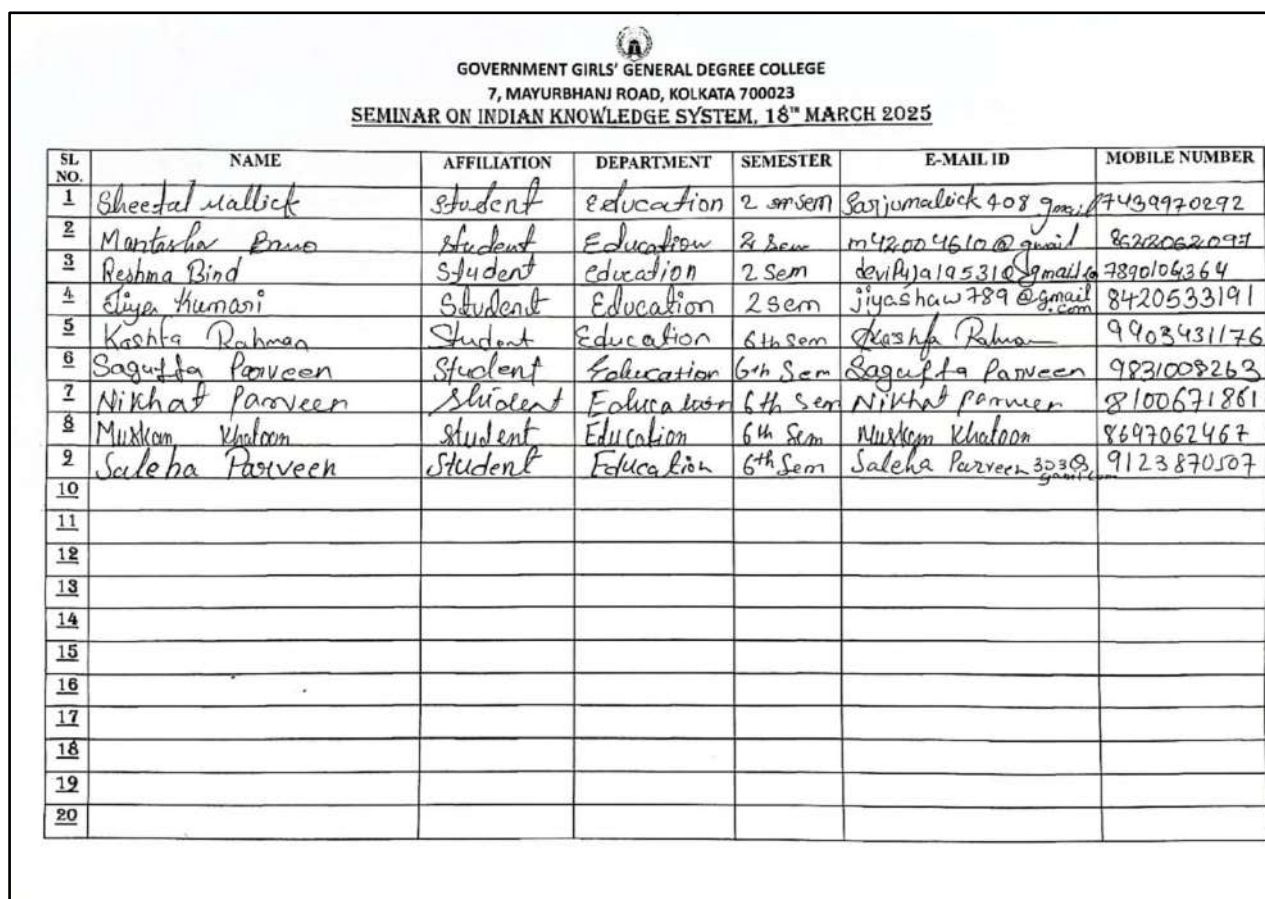 GOVERNMENT GIRLS' GENERAL DEGREE COLLEGE
7, MAYURBHANJ ROAD, KOLKATA 700023
SEMINAR ON INDIAN KNOWLEDGE SYSTEM, 18TH MARCH 2025
SL NO. NAME AFFILIATION DEPARTMENT SEMESTER E-MAIL ID MOBILE NUMBER
1 Sheetal Mallick Student Education 2 sem 408 gmail 7439970292
2 Mantasha Bano Student Education 2 Sem m42004610@gmail
3 Reshma Bind Student education 2 Sem 7890104364
4 Jiya Kumari Student Education 2 sem jiyashaw789@gmail.com 8420533191
5 Kashfa Rahman Student Education 6th Sem Kashfa Rahman 9903431176
6 Sagufta Parveen Student Education 6th Sem Sagufta Parveen 9831008263
7 Nikhat Parveen Student Education 6th Sem Nikhat Parveen 8100671861
8 Muskan Khatoon Student Education 6th Sem Muskan Khatoon 8697062467
9 Saleha Parveen Student Education 6th Sem Saleha Parveen 9123870507
10
11
12
13
14
15
16
17
18
19
20